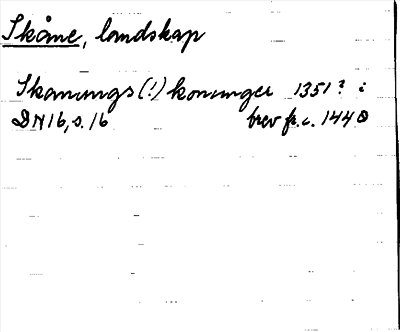 Skåne, landskap
Skanungs(!) konunger 1351? i
DN 16, s. 16 brev fr. c. 1440